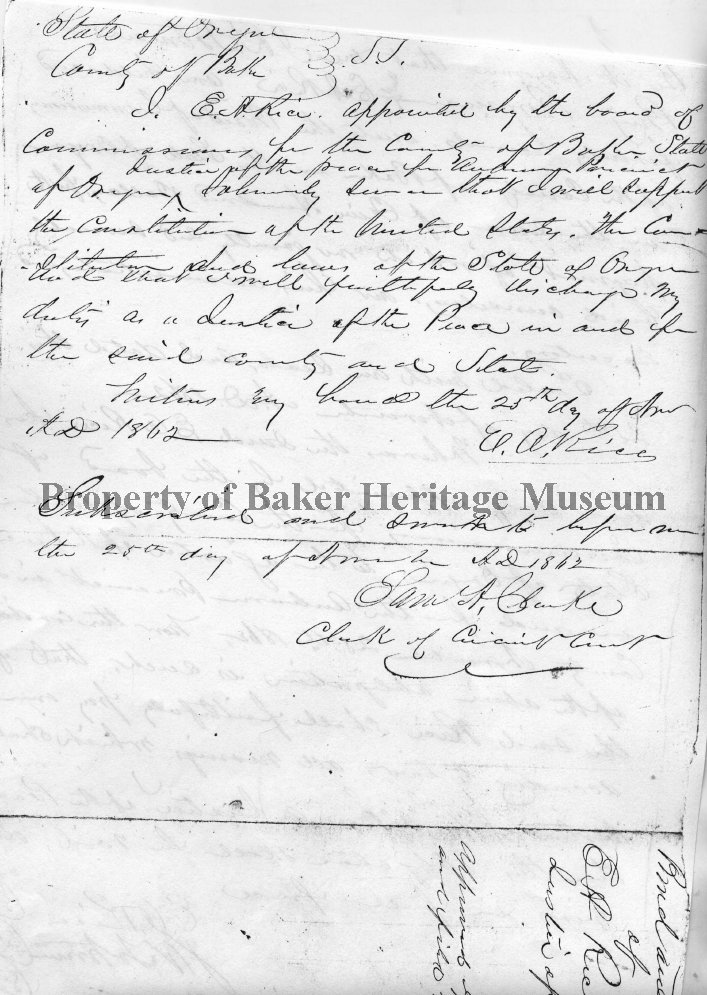 State of Oregon
County of Baker } S.S.
I. E. A. Rice appointed by the board of
Commissioners for the County of Baker State
Justice of the peace for Auburn Precinct
of Oregon ^ Solemnly swear that I will support
the Constitution of the United States. The Con-
stitution and laws of the State of Oregon
and that I will faithfully discharge my
duties as a Justice of the Peace in and for
the said county and State.
Witness my hand the 25th day of Nov
A D 1862
E. A. Rice
Property of Baker Heritage Museum
Subscribed and sworn to before me
the 25th day of November A D 1862
Sam A. Clarke
Clerk of Circuit Court
Bond and
of
E A Rice
Justice of
Approved
and filed